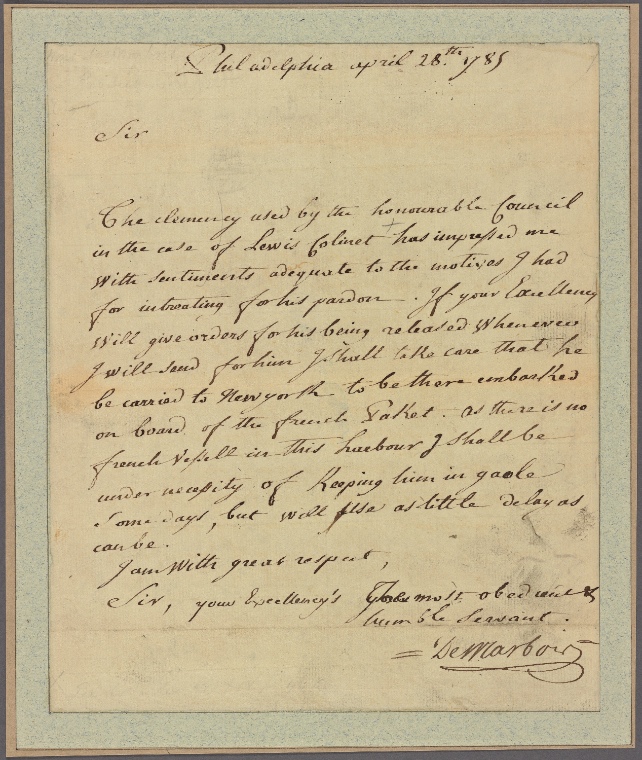 Philadelphia april 28.th 1785
Sir
The clemency used by the honourable Council
in the case of Lewis Colinet has impressed me
With sentiments adequate to the motives I had
for intreating for his pardon. If your Excellency
Will give orders for his being released Whenever
I will send for him I shall take care that he
be carried to Newyork to be there embarked
on board of the french Paket. as there is no
french Vessell in this harbour I shall be
under necessity of Keeping him in gaole
some days, but will use as little delay as
can be.
I am With great respect,
Sir, your Excellency's most obedient &
humble Servant.
De Marbois